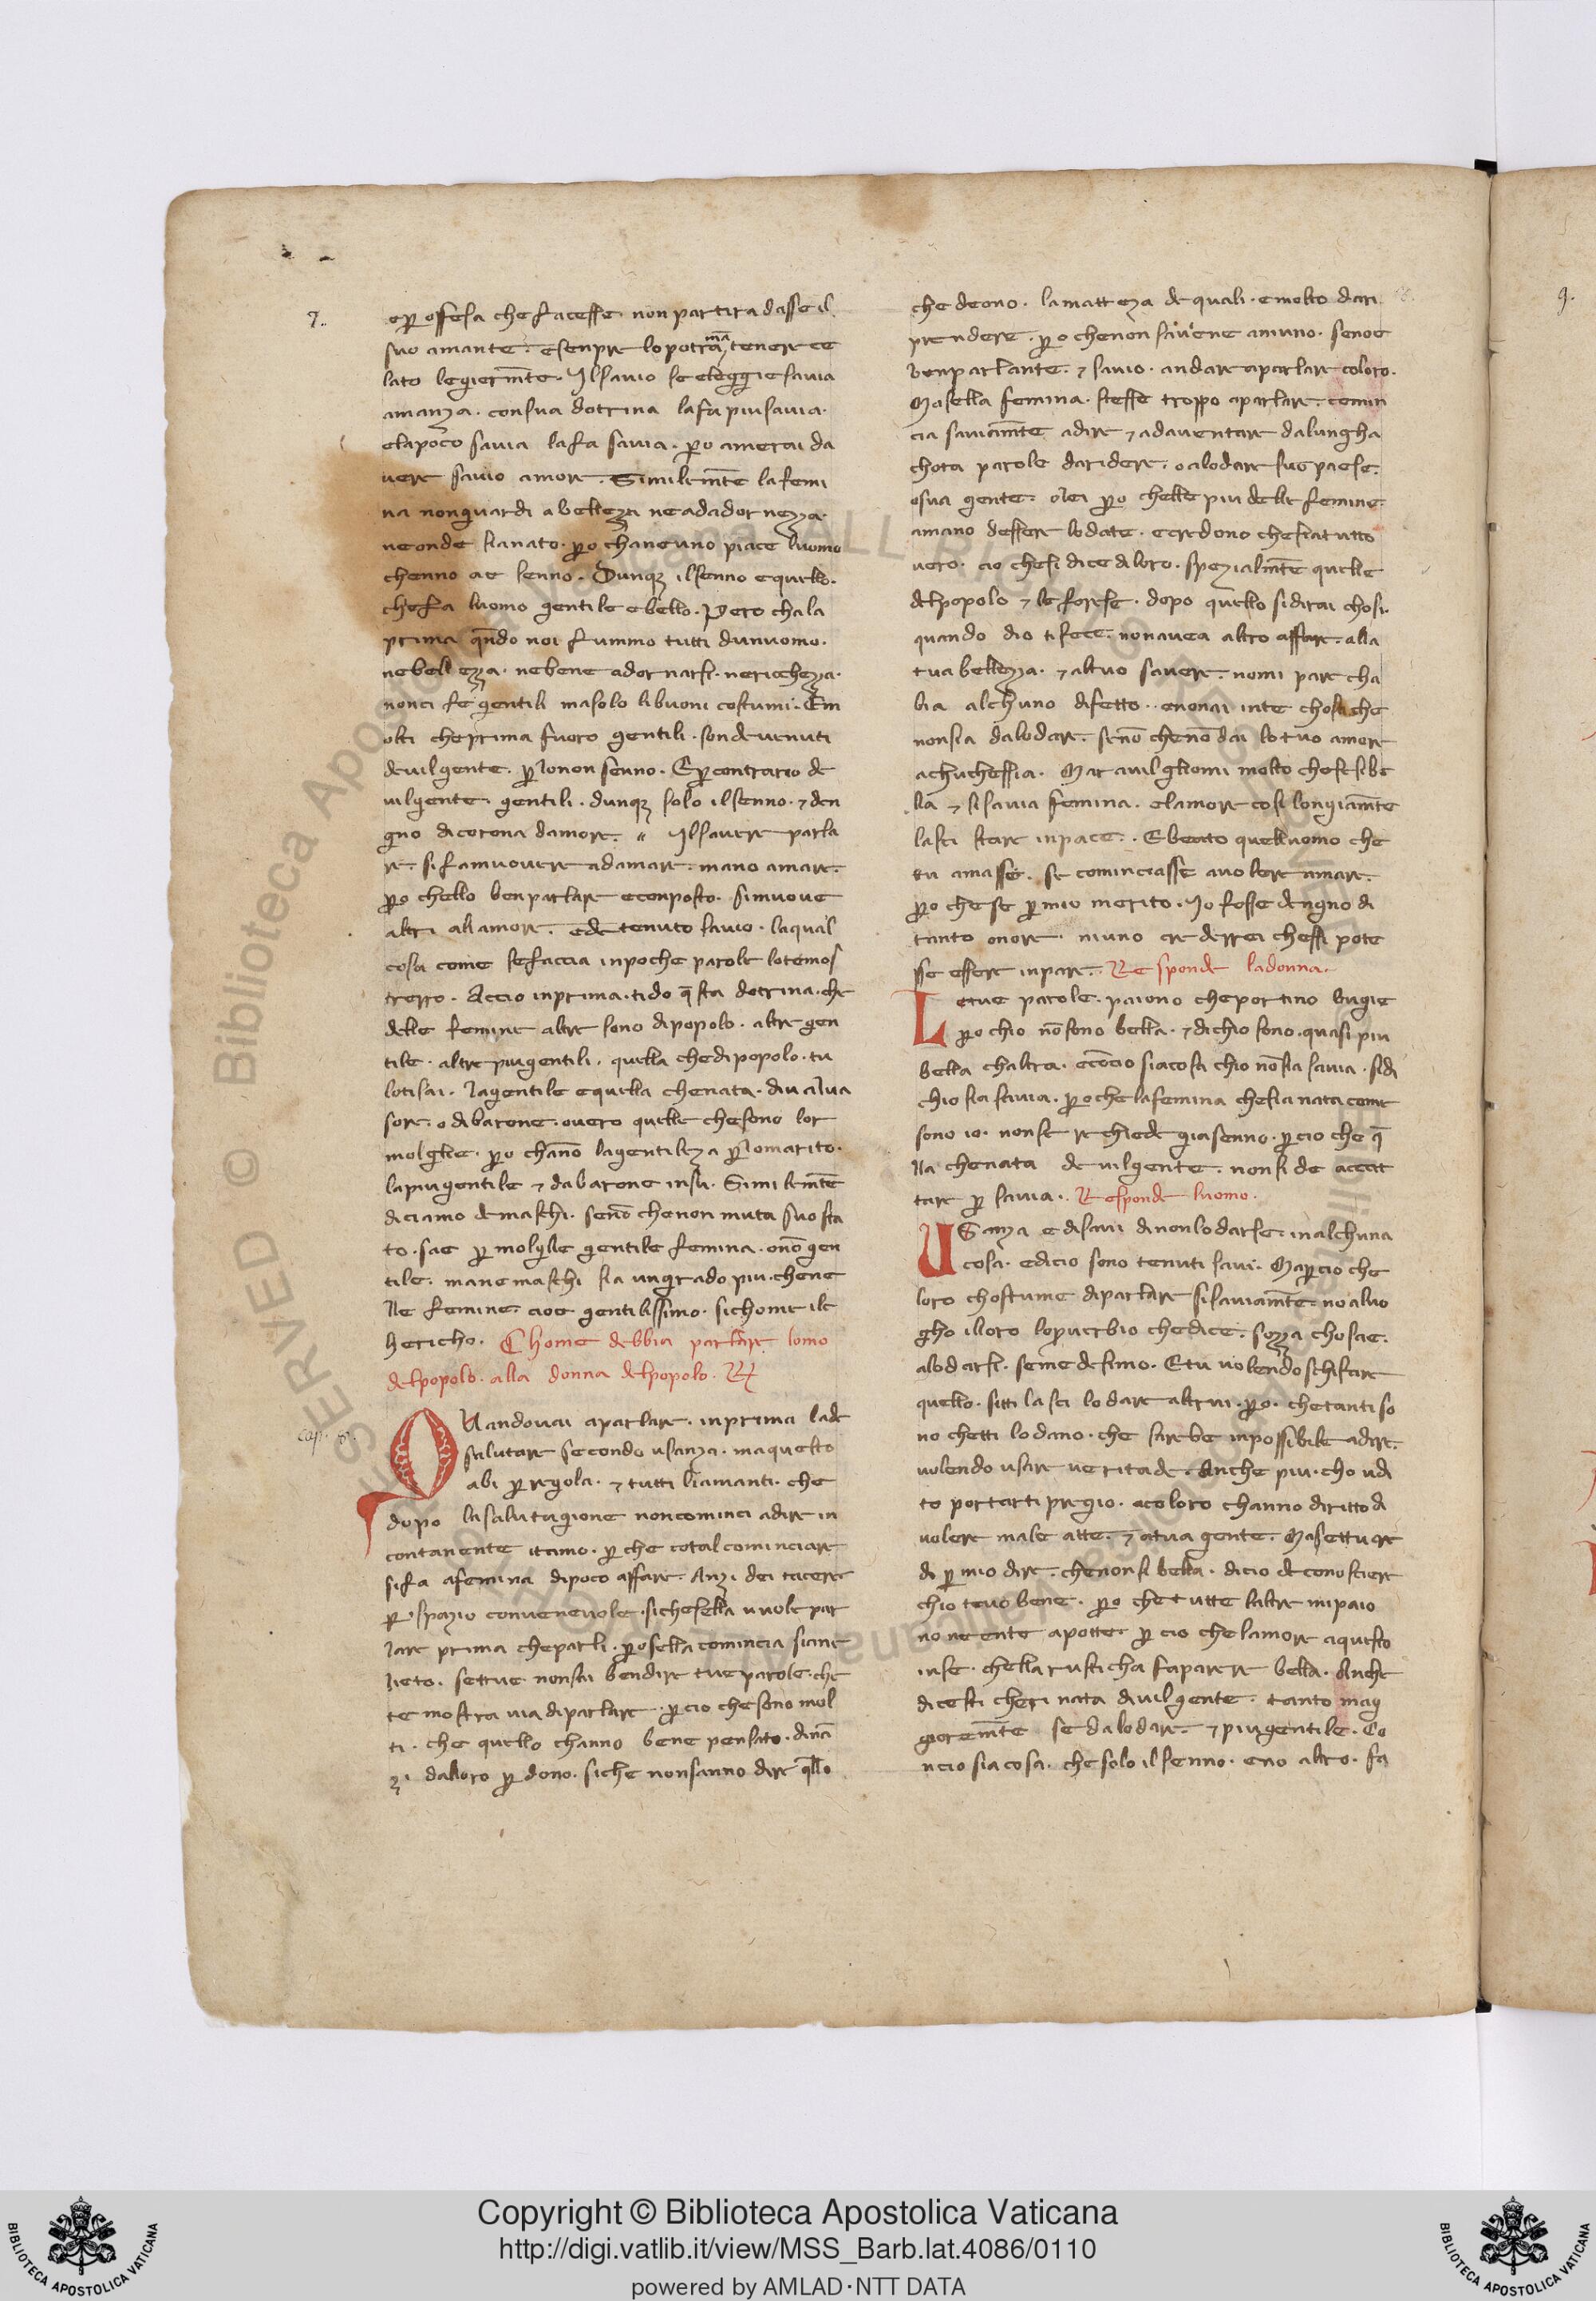 7.
oꝑ offesa che facesse non partira dasse il
suo amante. esenpre lo potra mā tenere ce
lato legiermēte. Il savio se eleggie savia
amanza. con sua dotrina la fa piu savia.
e la poco savia la fa savia. ꝑo amerai da
vere savio amore. Similemēte la femi
na non guardi a bellezza ne ad adornezza.
ne onde sia nato. ꝑo chaneuno piace luomo
chenno ae senno. Dunqȝ il senno e quello.
che fa luomo gentile e bello. Pero cha la
prima qn̄do noi fummo tutti dun uomo.
ne bellezza. ne bene adornarsi. ne richezza.
non ci fe gentili ma solo li buoni costumi. Em
olti che prima fuoro gentili. son devenuti
de vil gente. ꝑ lo non senno. E ꝑ contrario de
vil gente gentili. dunqȝ solo il senno. ⁊ den
gno di corona damore. Il savere parla
re. si fa muovere ad amare. ma no amare.
ꝑo chello ben parlare e conposto. si muove
altri all amore. ed e tenuto savio. la qual
cosa come se faccia in poche parole lo te mos
trerro. Accio in prima. ti do q̄sta dotrina. che
delle femine altre sono di popolo. altre gen
tile. altre piu gentili. quella che di popolo. tu
lo ti sai. la gentile e quella che nata. di valva
sore. o di barone. overo quelle che sono lor
molglie. ꝑo channo la gentileza ꝑ lo marito.
la piu gentile ⁊ da barone in su. Similemēte
diciamo de maschi. senō che non muta suo sta
to. sae ꝑ molglie gentile femina. o nō gen
tile. ma ne maschi sia un grado piu. che ne
lle femine. cioe gentilissimo. sichome ilc
hericho. Chome debbia parlare lomo
del popolo. alla donna del popolo. R
Cap.
QUando vai a parlare. in prima la de
salutare secondo usanza. ma questo
abi ꝑ regola. ⁊ tutti li amanti. che
dopo la salutagione non cominci a dire in
contanente itamo. ꝑ che cotal cominciare
si fa a femina di poco affare. Anzi dei tacere
ꝑ spazio convenevole. siche sella vuole par
lare prima che parli. ꝑo sella comincia siane
lieto. se ttue non sai ben dire tue parole. che
te mostra via di parlare. ꝑcio che sono mol
ti. che quello channo bene pensato. dinā
zi dalloro ꝑdono. siche non sanno dire q̄llo
che deono. la matteza de quali. e molto da ri
prendere. ꝑo che non savene a niuno. se no e
ben parlante. ⁊ savio. andare a parlare coloro.
Ma sella femina. stesse troppo a parlare. comin
cia saviamēte a dire ⁊ ad aventare da lungha
chota parole da ridere. o a lodare suo paese.
o sua gente. o lei ꝑo chelle piu delle femine
amano dessere lodate. e credono che sia tutto
vero. cio che si dice di loro. spezialmēte quelle
del popolo ⁊ le forese. dopo quello si dirai chosi.
quando dio ti fece. non avea altro affare. alla
tua bellezza. ⁊ al tuo savere. nomi pare cha
bia alchuno difetto. e non ai in te chosa che
non sia da lodare. senō che nō dai lo tuo amore
a chuchessia. Maravilgliomi molto che se si be
lla ⁊ si savia femina. el amore cosi longiamēte
lasci stare in pace. E beato quell uomo che
tu amassi. se cominciasse a volere amare.
ꝑo che se ꝑ mio merito. Io fosse dengno di
tanto onore niuno crederrei chessi pote
sse essere in pare. Responde la donna.
Letue parole. paiono che portino bugie
ꝑo chio nō sono bella. ⁊ di chio sono. quasi piu
bella chaltra. ecōcio sia cosa chio nō sia savia. si di
chio sia savia. ꝑo che la femina che sia nata come
sono io. non se rechiede gia senno. ꝑcio che q̄
lla che nata de vil gente. non si de acetat
tare ꝑ savia. Responde luomo.
USanza e di savi di non lodarse. in alchuna
cosa. e di cio sono tenuti savi. Ma ꝑcio che
loro chostume di parlare si saviamēte. no a luo
gho il loro loproverbio che dice. sozza chosa e.
a lodarsi. se medesimo. E tu volendo schifare
quello. sitti lasci lodare altrui. ꝑo. che tanti so
no chetti lodano. che sarebe inpossibile a dire.
volendo usare veritade. Anche piu. cho udi
to portarti pregio. a coloro channo diritto di
volere male atte. ⁊ a tua gente. Ma settu cre
di ꝑ mio dire. che non si bella. di cio de conosciere
chio te vo bene. ꝑo che tutte laltre mi paio
no neente a potte. ꝑcio che lamore a questo
in se. chella rusticha fa parere bella. Anche
dicesti cheri nata di vil gente. tanto mag
giormēte se da lodare. ⁊ piu gentile. Co
ncio sia cosa. che solo il senno. e no altro. fa
9.
Copyright © Biblioteca Apostolica Vaticana
http://digi.vatlib.it/view/MSS_Barb.lat.4086/0110
powered by AMLAD·NTT DATA
BIBLIOTECA APOSTOLICA VATICANA
BIBLIOTECA APOSTOLICA VATICANA